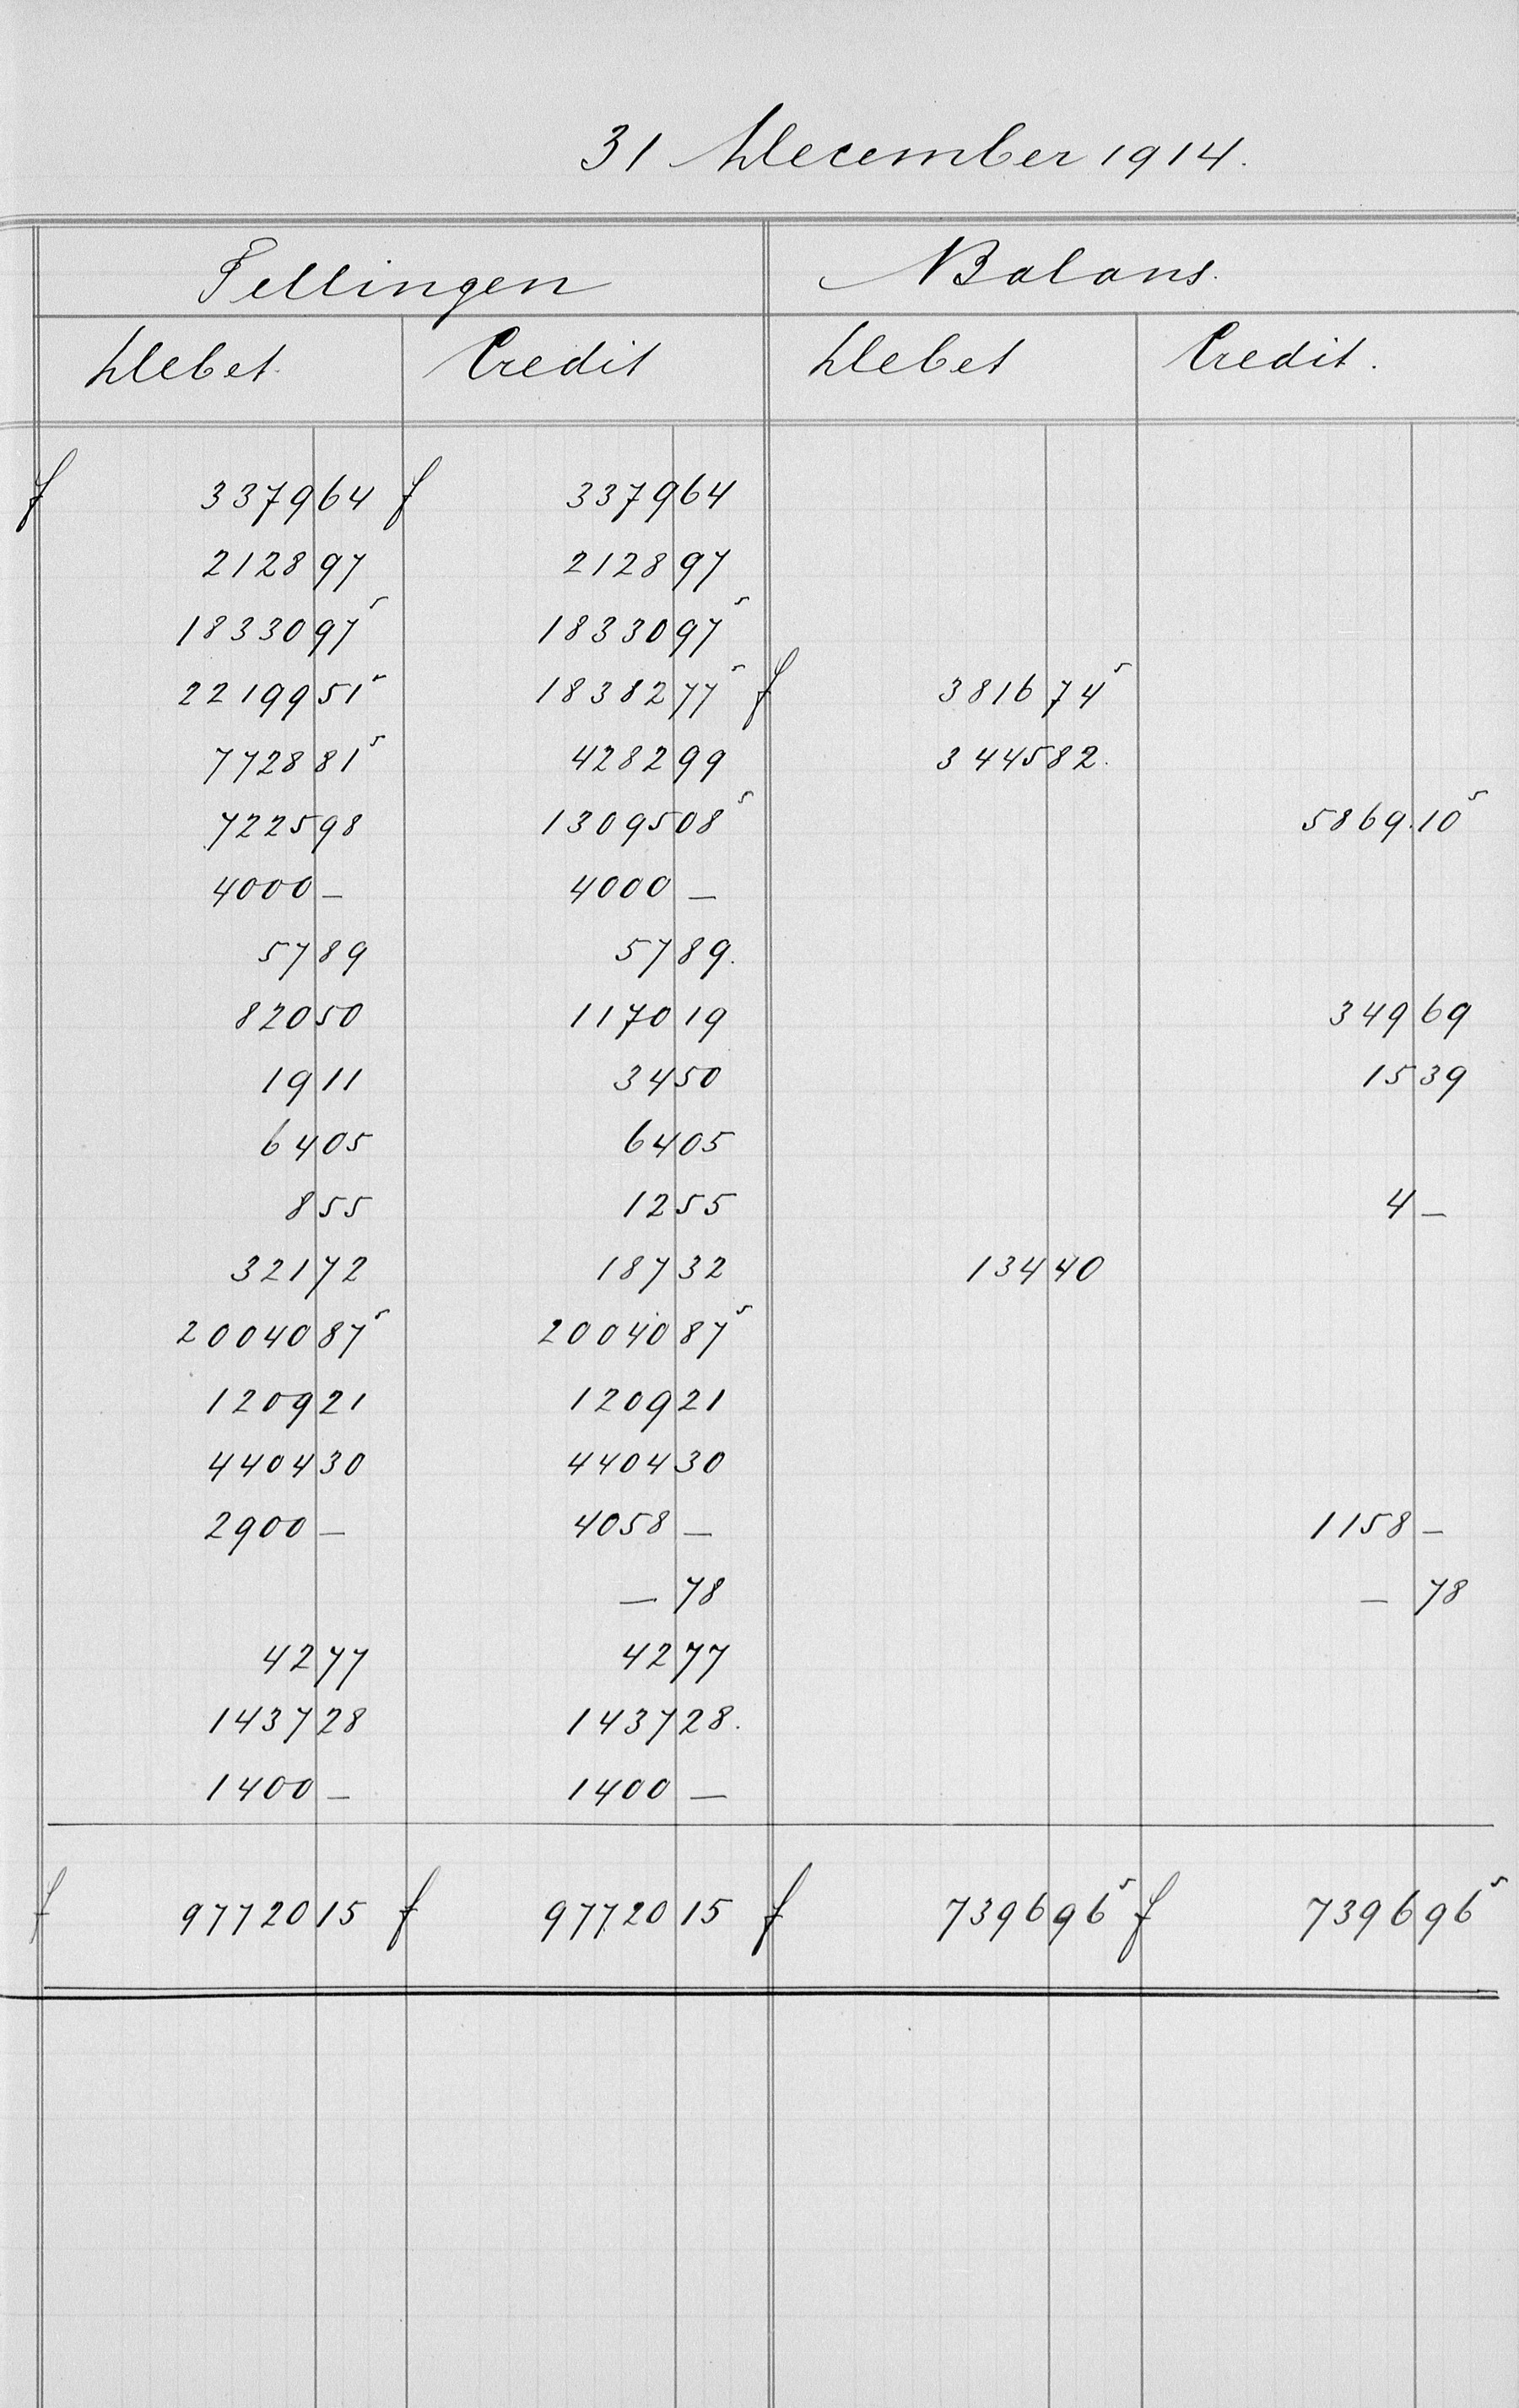 31 December 1914.
Tellingen Balans.
Debet. Credit Debet Credit.
f 3379 64 f 3379 64
2128 97 2128 97
18330 97⁵ 18330 97⁵
22199 51⁵ 18382 77⁵ f 3816 74⁵
7728 81⁵ 4282 99 3445 82.
7225 98 13095 08⁵ 5869.10⁵
4000 — 4000 —
57 89 57 89.
820 50 1170 19 349 69
19 11 34 50 15 39
64 05 64 05
8 55 12 55 4 —
321 72 187 32 134 40
20040 87⁵ 20040 87⁵
1209 21 1209 21
4404 30 4404 30
2900 — 4058 — 1158 —
— 78 — 78
42 77 42 77
1437 28 1437 28.
1400 — 1400 —
f 97720 15 f 97720 15 f 7396 96⁵ f 7396 96⁵